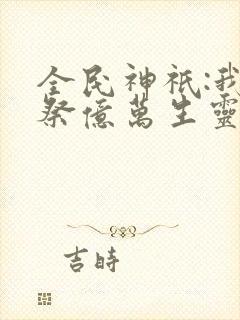 全民神祇:我
祭億萬生靈
吉時